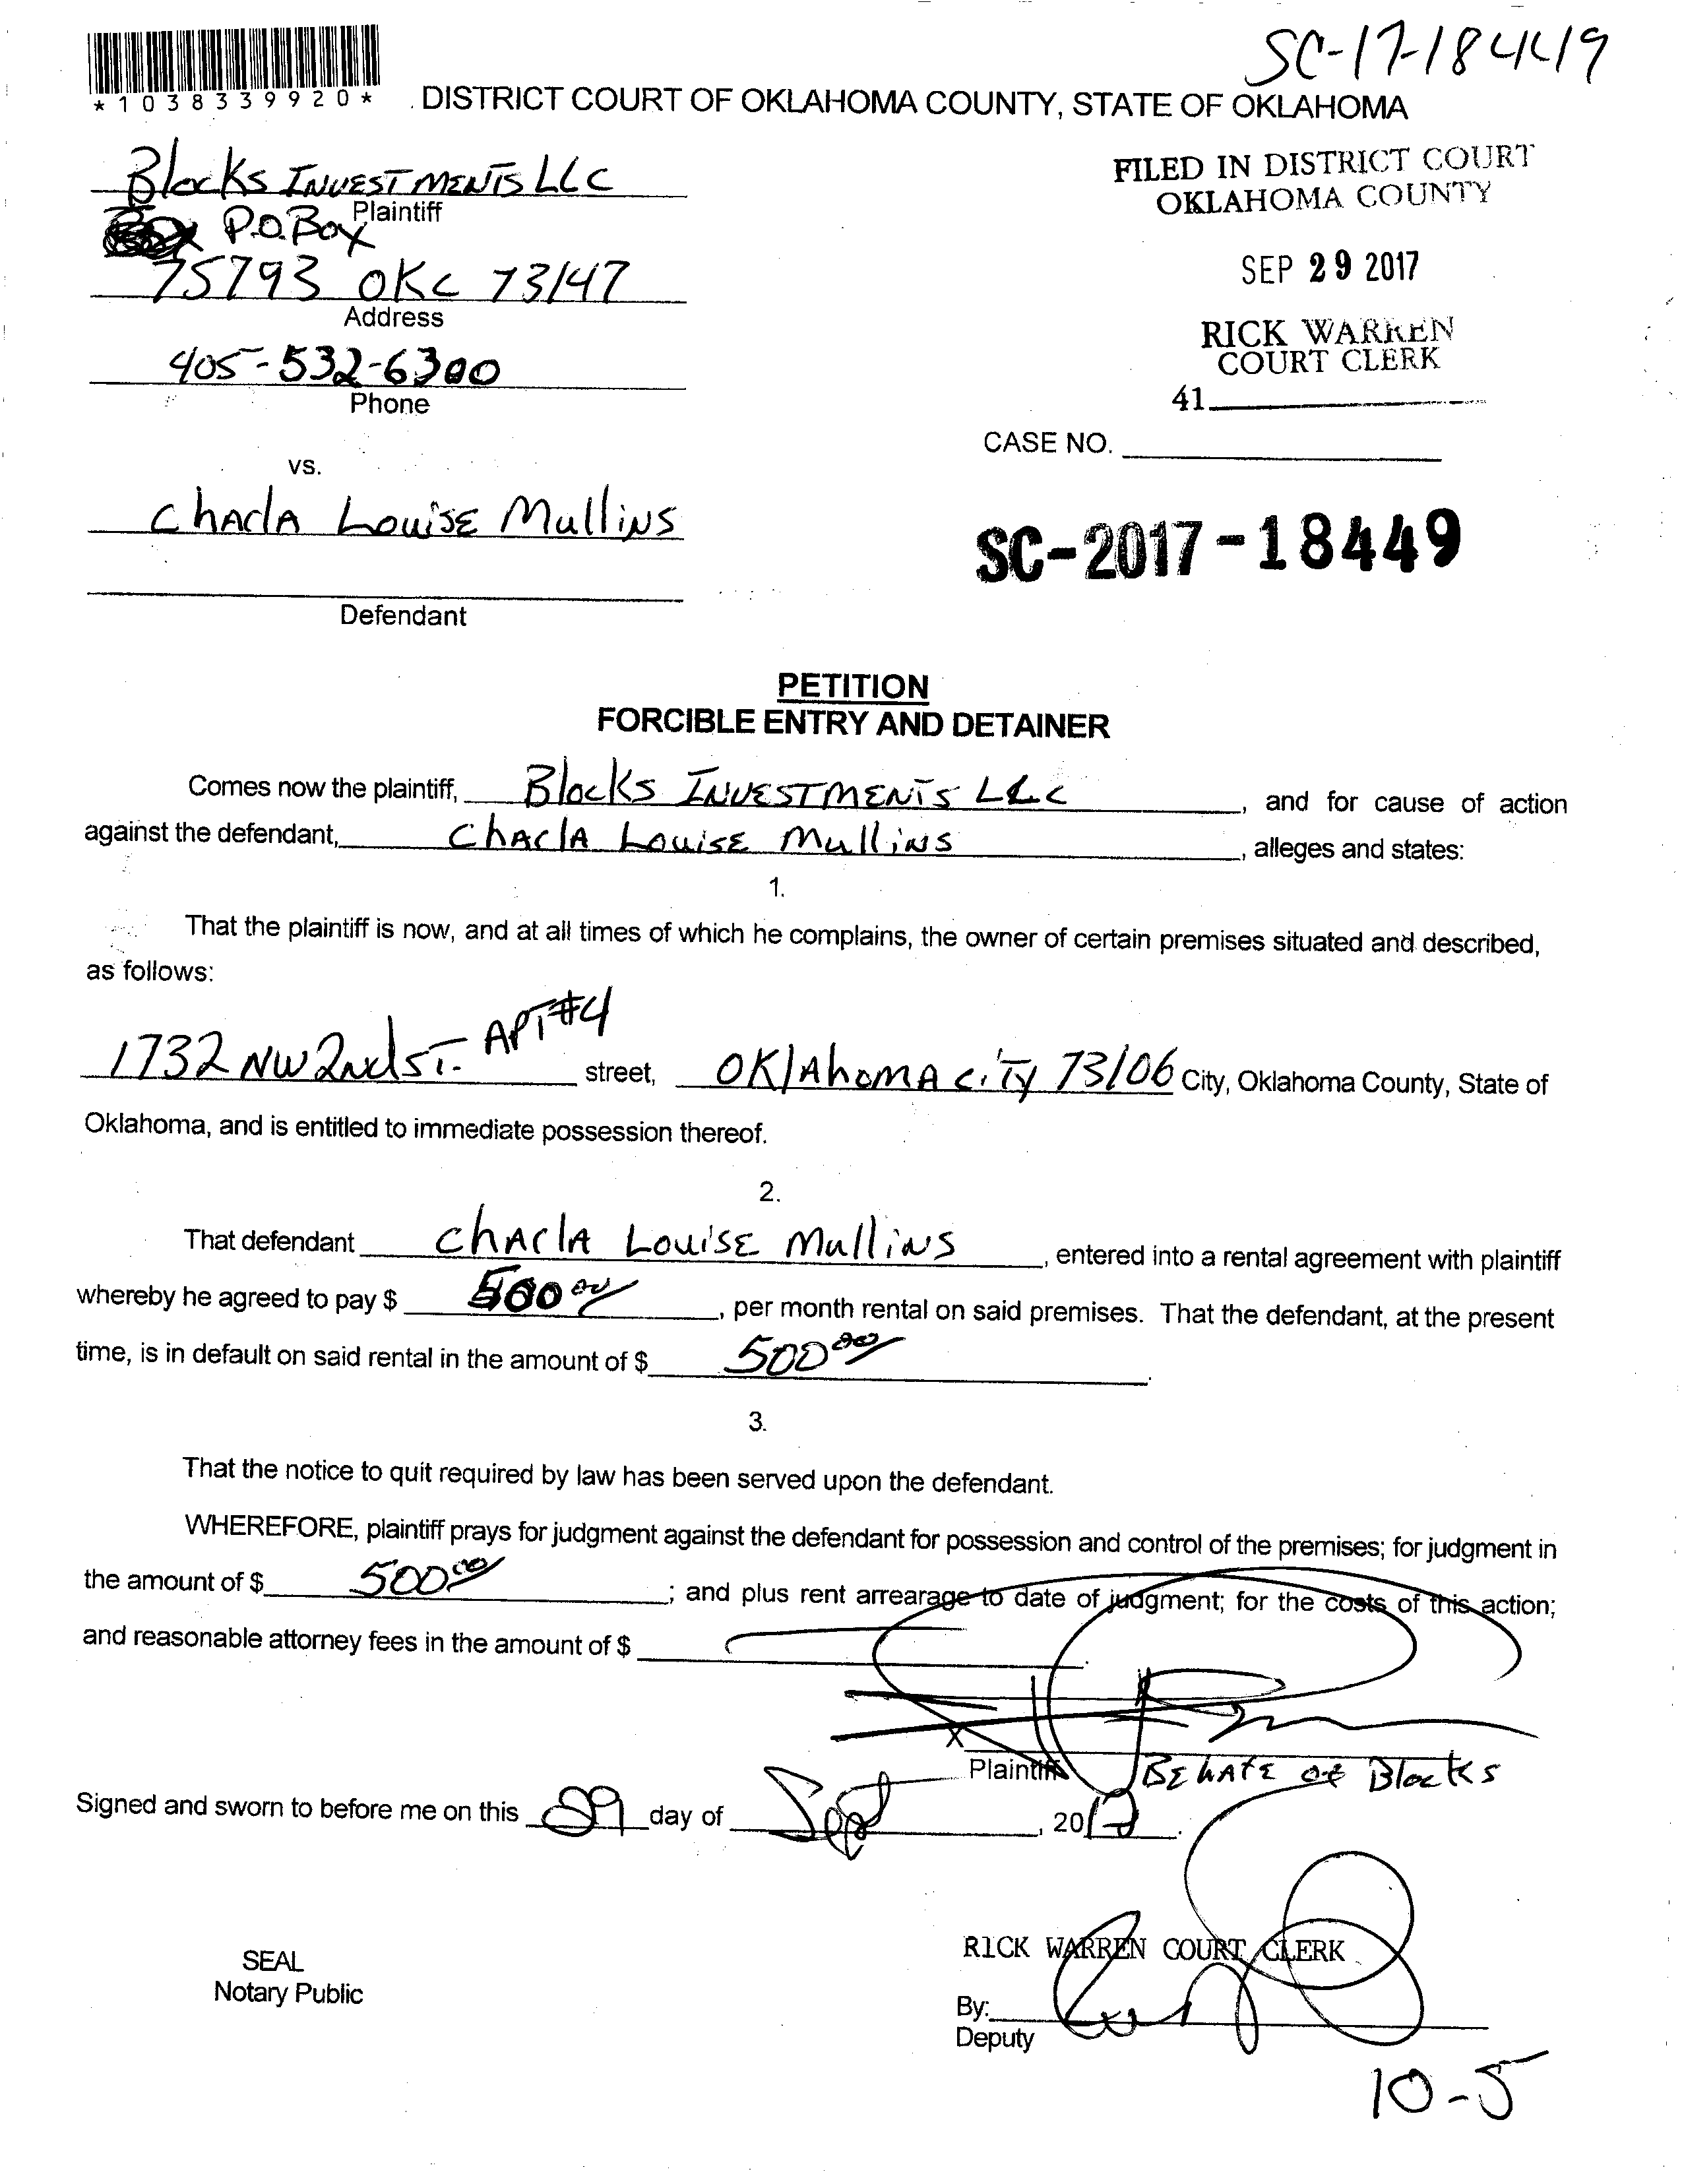 SC-17-18449
*1038339920*
DISTRICT COURT OF OKLAHOMA COUNTY, STATE OF OKLAHOMA
Blocks INVESTMENTS LLC
Plaintiff
P.O. Box
75793 OKC 73147
Address
405-532-6300
Phone
FILED IN DISTRICT COURT
OKLAHOMA COUNTY
SEP 29 2017
RICK WARREN
COURT CLERK
41
CASE NO.
vs.
ChArlA Louise Mullins
Defendant
SC-2017-18449
PETITION
FORCIBLE ENTRY AND DETAINER
Comes now the plaintiff, Blocks INVESTMENTS LLC, and for cause of action
against the defendant, ChArlA Louise Mullins, alleges and states:
1.
That the plaintiff is now, and at all times of which he complains, the owner of certain premises situated and described,
as follows:
1732 NW 2nd ST. APT #4 street, OKlAhomA CiTy 73106 City, Oklahoma County, State of
Oklahoma, and is entitled to immediate possession thereof.
2.
That defendant ChArlA Louise Mullins, entered into a rental agreement with plaintiff
whereby he agreed to pay $ 500 00, per month rental on said premises. That the defendant, at the present
time, is in default on said rental in the amount of $ 500 00.
3.
That the notice to quit required by law has been served upon the defendant.
WHEREFORE, plaintiff prays for judgment against the defendant for possession and control of the premises; for judgment in
the amount of $ 500 00; and plus rent arrearage to date of judgment; for the costs of this action;
and reasonable attorney fees in the amount of $
X
Plaintiff BEHAFE of Blocks
Signed and sworn to before me on this 29 day of Sept, 2017.
SEAL
Notary Public
RICK WARREN COURT CLERK
By:
Deputy
10-5